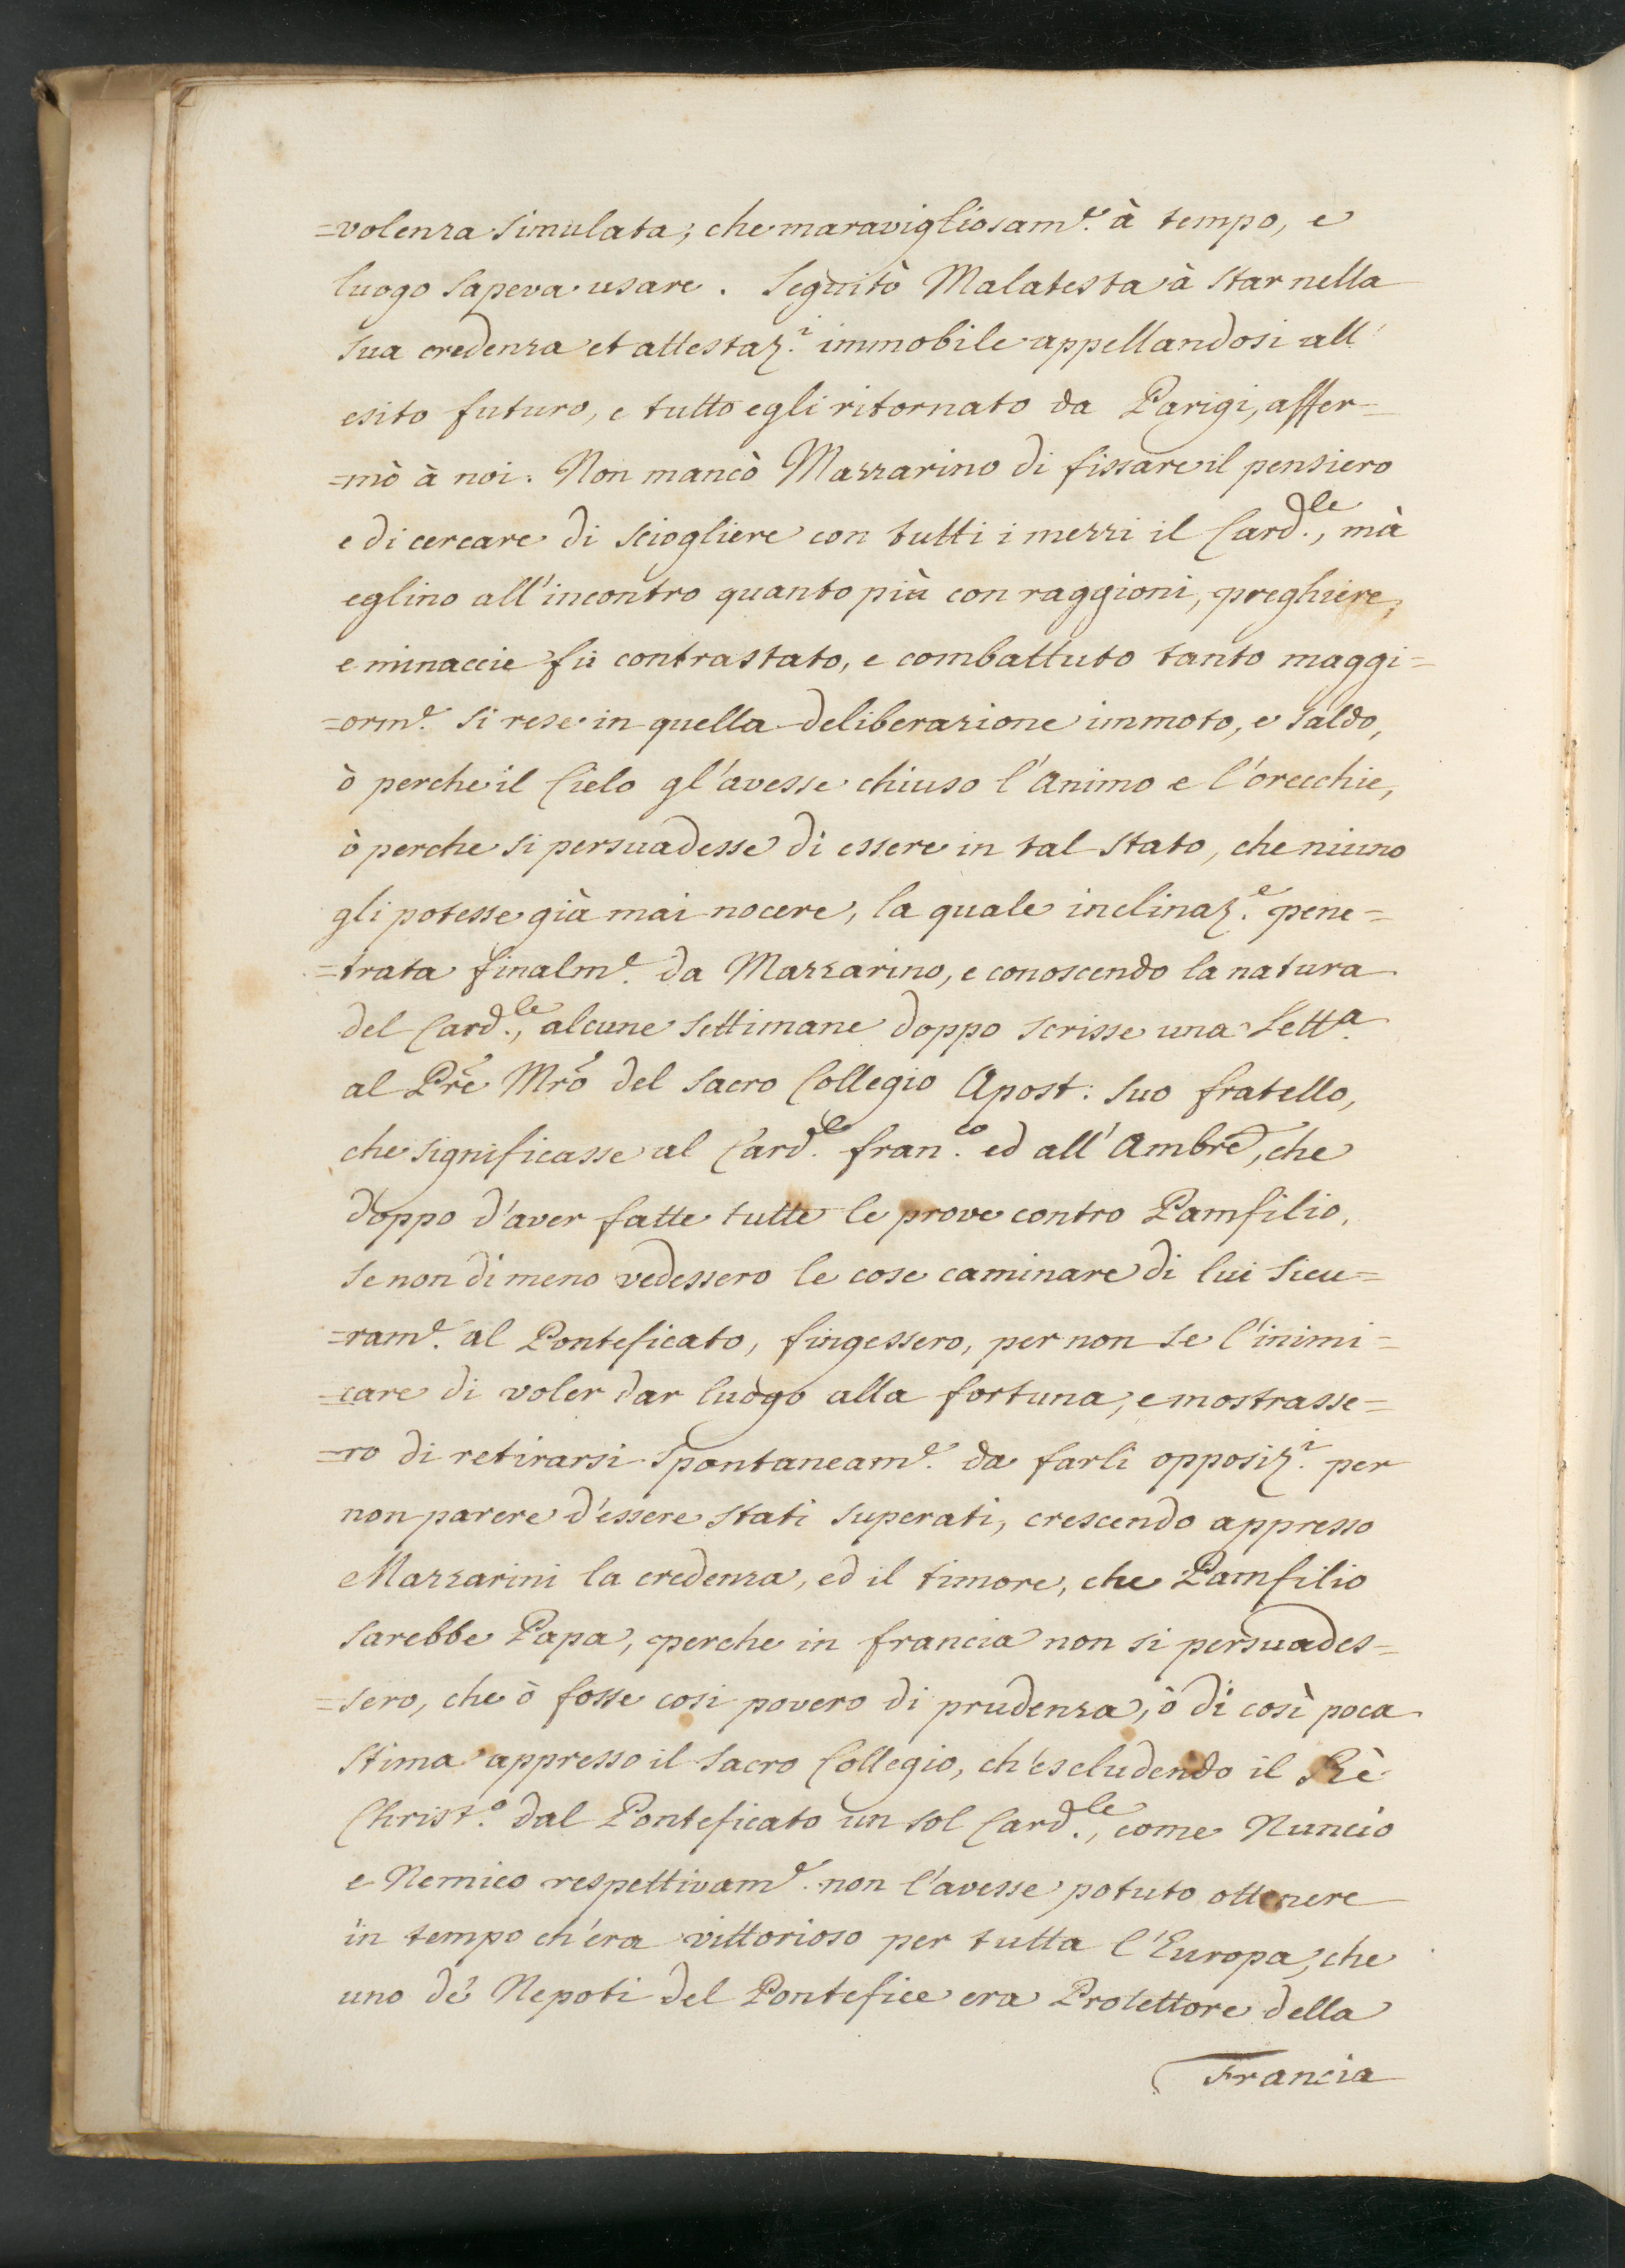 =volenza simulata; che maravigliosam.te à tempo, e
luogo sapeva usare. Seguitò Malatesta à star nella
sua credenza et attestaz.i immobile appellandosi all'
esito futuro, e tutto egli ritornato da Parigi, affer=
=mò à noi. Non mancò Mazzarino di fissare il pensiero
e di cercare di sciogliere con tutti i mezzi il Card.le, mà
eglino all'incontro quanto più con raggioni, preghiere,
e minaccie fù contrastato, e combattuto tanto maggi=
=orm.te si rese in quella deliberazione immoto, e saldo,
ò perche il Cielo gl'avesse chiuso l'Animo e l'orecchie,
ò perche si persuadesse di essere in tal stato, che niuno
gli potesse già mai nocere, la quale inclinaz.e pene=
=trata finalm.te da Mazzarino, e conoscendo la natura
del Card.le, alcune settimane doppo scrisse una Lett.a
al Pre Mro del Sacro Collegio Apost: suo fratello,
che significasse al Card.le fran.co ed all'Ambre, che
doppo d'aver fatte tutte le prove contro Pamfilio,
se non di meno vedessero le cose caminare di lui sicu=
=ram.te al Ponteficato, fingessero, per non se l'inimi=
=care di voler dar luogo alla fortuna, e mostrasse=
=ro di retirarsi spontaneam.te da farli opposiz.i per
non parere d'essere stati superati, crescendo appresso
Mazzarini la credenza, ed il timore, che Pamfilio
sarebbe Papa, perche in francia non si persuades=
=sero, che ò fosse cosi povero di prudenza, ò di così poca
stima appresso il Sacro Collegio, ch'escludendo il Rè
Christ.o dal Ponteficato un sol Card.le, come Nuncio
e Nemico respettivam.te non l'avesse potuto ottenere
in tempo ch'era vittorioso per tutta l'Europa, che
uno de' Nepoti del Pontefice era Protettore della
Francia